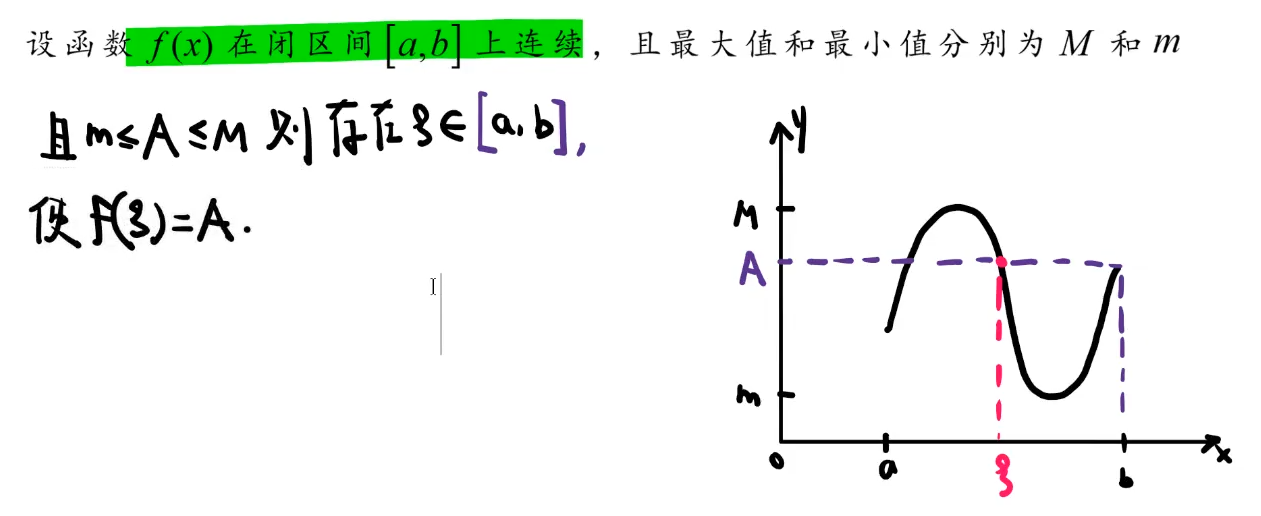 设函数 f(x) 在闭区间 [a,b] 上连续，且最大值和最小值分别为 M 和 m
且 m≤A≤M 则存在 ξ∈[a,b],
使 f(ξ)=A.
y
M
A
m
0
a
ξ
b
x